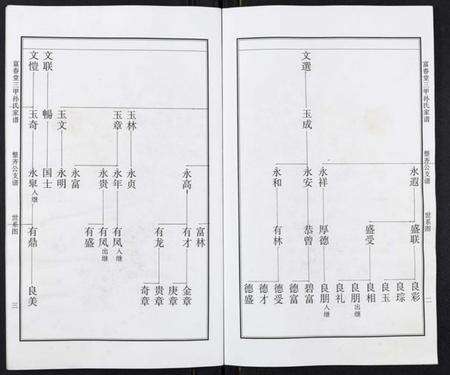 富春堂三甲孙氏家谱
整齐公支谱
世系图
二
文選
玉成
永遐
永祥
永安
永和
盛联
盛受
厚德
恭曾
有林
良彩
良琮
良玉
良相
良朋出继
良礼
良朋入继
碧富
德富
德受
德才
德盛
富春堂三甲孙氏家谱
整齐公支谱
世系图
三
文联
文愷
玉林
玉章
玉文
暢
玉奇
永高
永贞
永年
永贵
永富
永明
国士
永皋入继
富林
有才
有龙
有凤入继
有凤出继
有盛
有鼎
金章
庚章
贵章
奇章
良美